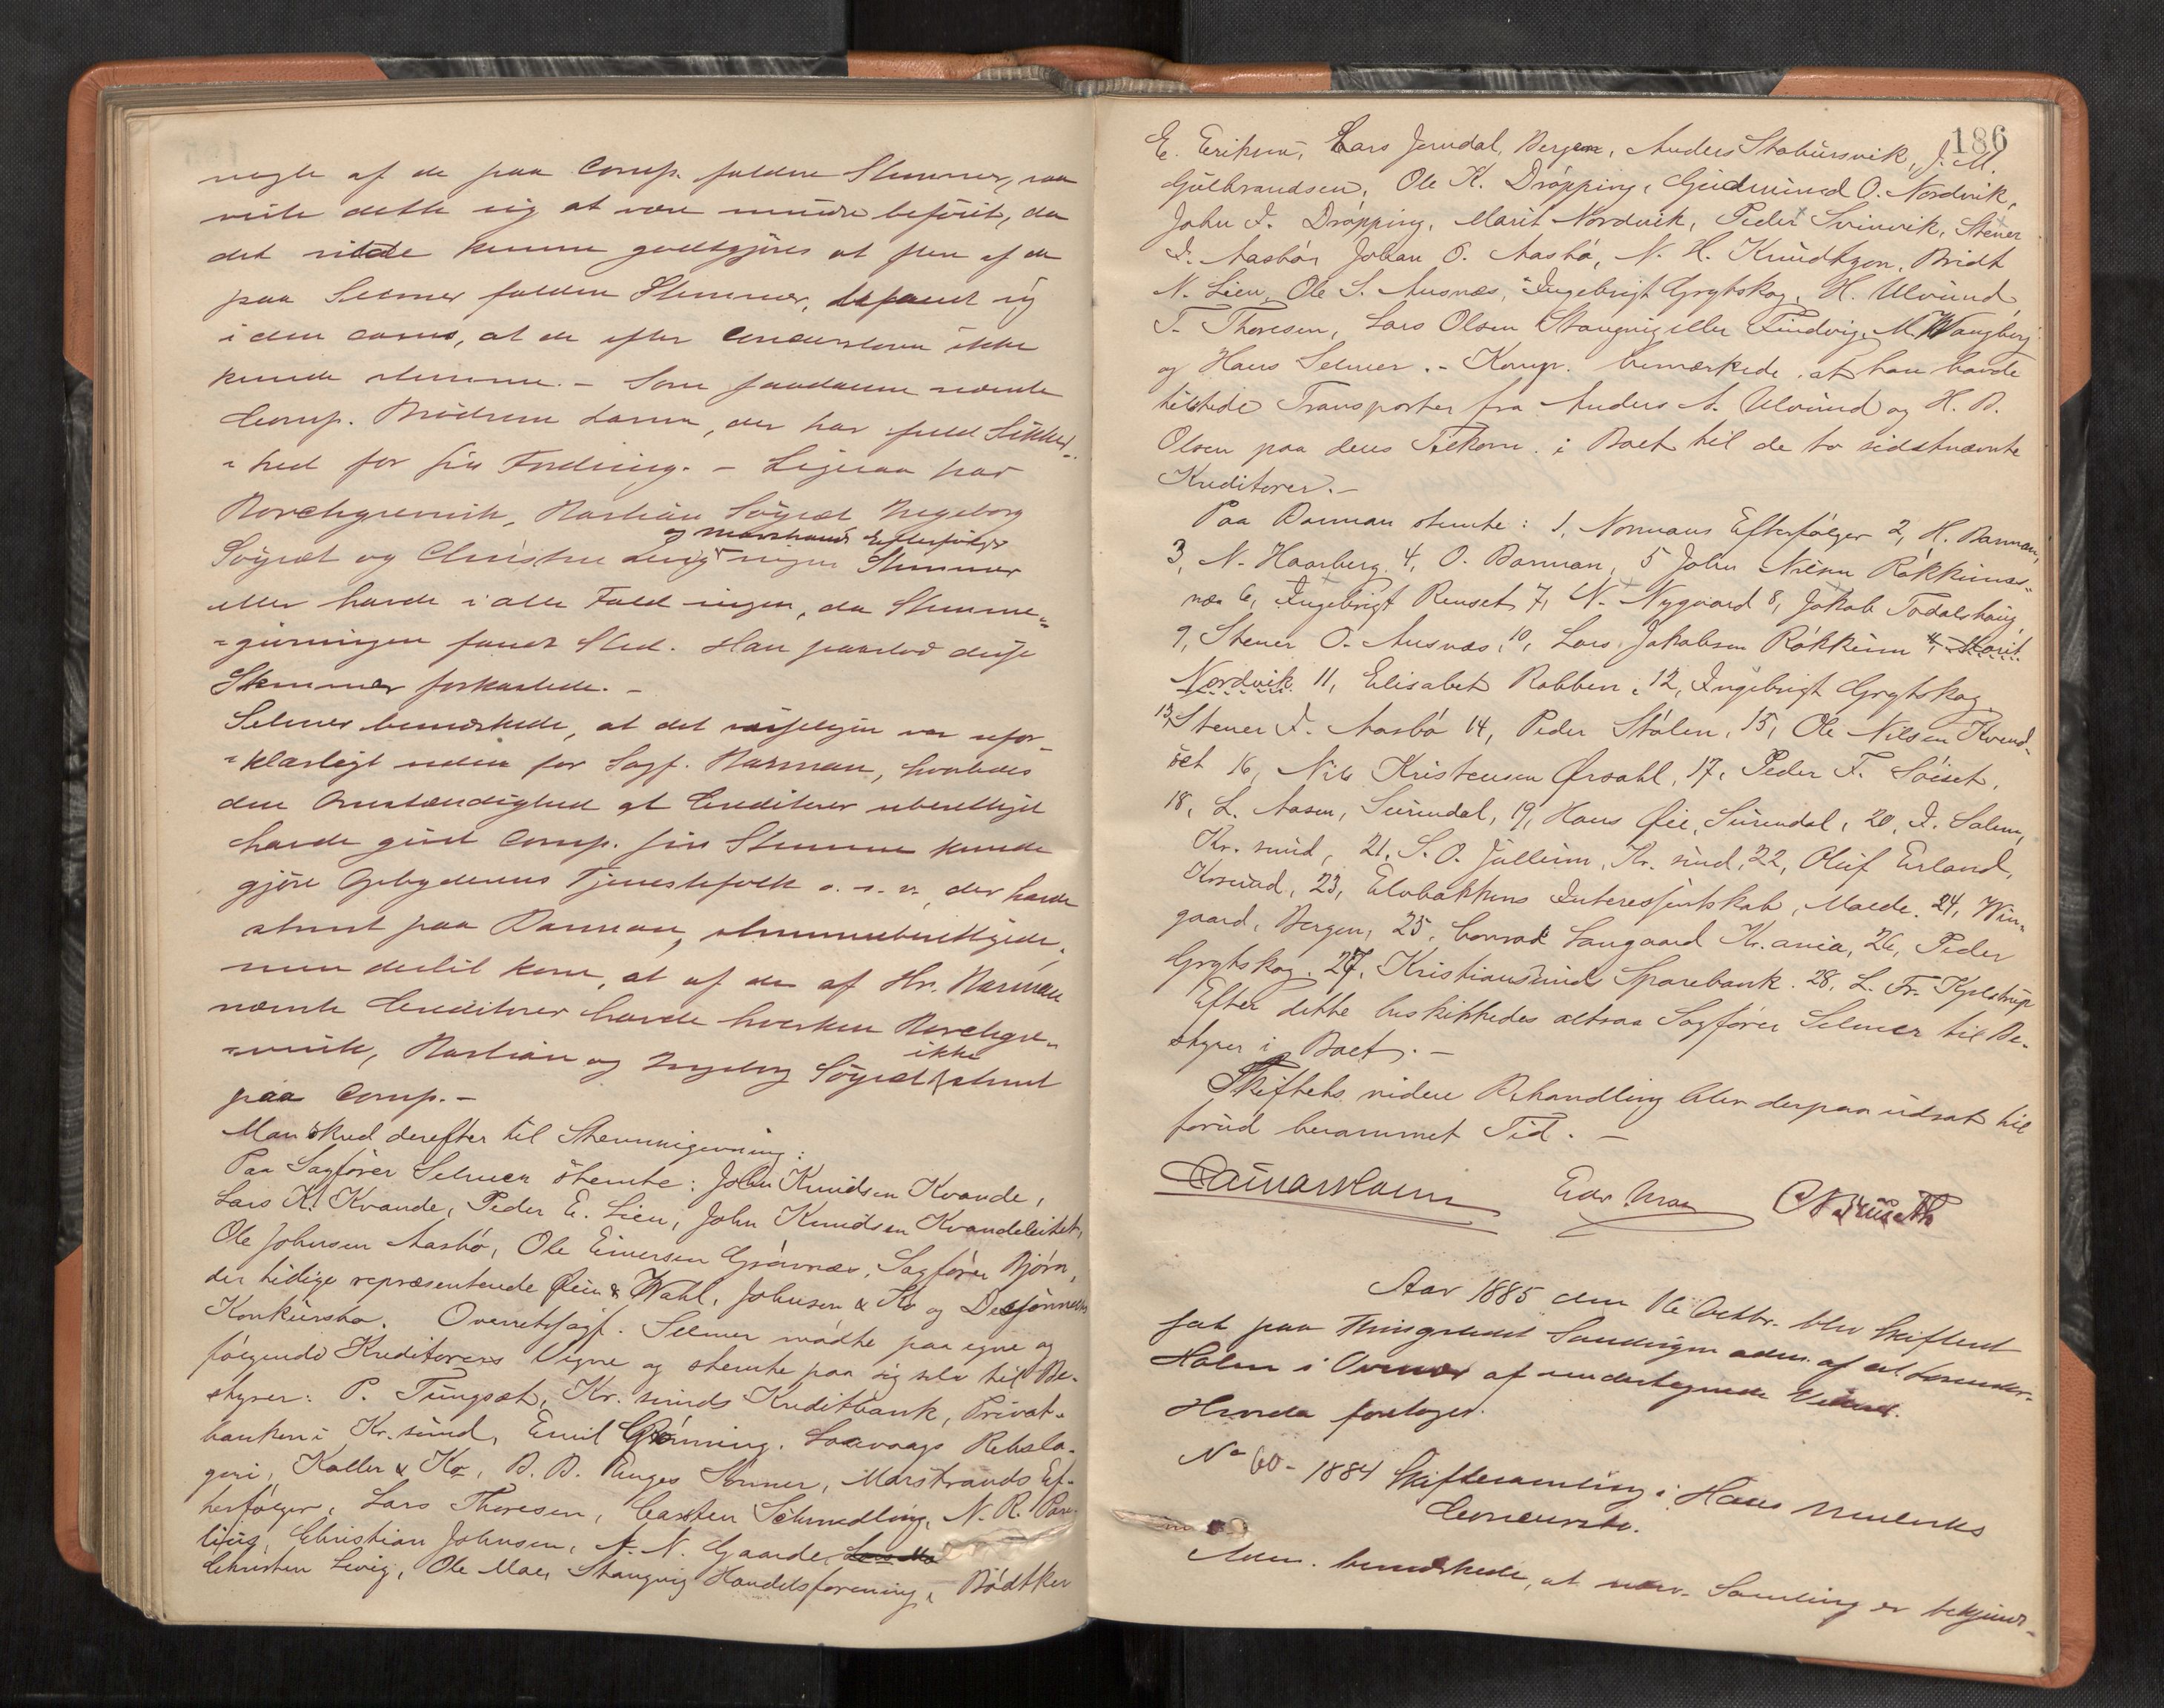 nogle af de paa Comp. faldne Stemmer, saa
viste dette sig at være mindre beføiet, da
det vilde kunne godtgjøres at flere af de
paa Selmer faldne Stemmer, befandt sig
i den casus, at de efter Concursloven ikke
kunde stemme. – Som saadanne nævnte
Comp. Brødrene Larsen, der har fuld Sikker-
-hed for sin Fordring. – Ligesaa har
Borchgrevink, Bastian Søyset Ingeborg
og Marstrands Efterfølger
Søyset og Christen Levig ingen Stemmer
eller havde i alle Fald ingen, da Stemme-
-givningen fandt Sted. Han paastod disse
Stemmer forkastede. –
Selmer bemærkede, at det var
-klarligt uden for Sagf. Barman, hvorledes
den Omstændighed at Creditorer uberettiget
havde givet Comp. sin Stemme kunde
gjøre Tjenestefolk o. s. v., der havde
stemt paa Barman, stemmeberettigede,
men dertil kom, at af de af Hr. Barman
nævnte Creditorer havde hverken Borchgre-
-vink, Bastian og Ingeborg Søyset stemt
ikke
paa Comp. –
Man skred derefter til Stemmegivning:
Paa Sagfører Selmer stemte: John Knudsen Kvande,
Lars K. Kvande, Peder E. Lien, John Knudsen Kvandeleitet,
Ole Johnsen Aasbø, Ole Einersen Grønnæs, Sagfører Bjørn,
der tidlige repræsenterede Øien & Wahl, Johnsen & Ko og
Konkursbo. Overretssagf. Selmer mødte paa egne og
følgende Kreditorers Vegne og stemte paa sig selv til Be-
styrer: P. Tungsæt, Kr. sunds Kreditbank, Privat-
banken i Kr. sund, Emil Grønning, Rebsla-
geri, Koller & Ko, B. B. Enges Sønner, Marstrands Ef-
terfølger, Lars Thoresen, Carsten Schmedling, N. R. Pare-
lius, Christian Johnsen, A. N. Gaarde,
Christen Levig, Ole Moe, Stangvig Handelsforening, Bødtker
186
E. Eriksen, Lars Jerndal, Bergen, Anders Stabursvik, J. M.
Gulbrandsen, Ole K. Drøpping, Gudmund O. Nordvik,
John I. Drøpping, Marit Nordvik, Peder Svinvik, Stener
I. Aasbø, Johan O. Aasbø, N. H. Knudtzon, Bridt
N. Lien, Ole S. Ausnæs, Ingebrigt Grytskog, H. Ulvund,
T. Thoresen, Lars Olsen Stangvig eller Findvig, M. Wangberg
og Hans Selmer. – Komp. bemærkede, at han havde
tilstede Transporter fra Anders A. Ulvund og H. B.
Olsen paa deres Tilkom. i Boet til de to sidstnævnte
Kreditorer. –
Paa Barman stemte: 1, Normans Efterfølger 2, H. Barman,
3, N. Haarberg. 4, O. Barman, 5 John Røkkumes-
næs 6, Ingebrigt Renset, 7, N. Nygaard 8, Jakob Todalshaug,
9, Stener O. Ausnæs, 10, Lars Jakobsen Røkkum 11, Marit
Nordvik 11, Elisabet Robben, 12, Ingebrigt Grytskog,
13, Stener I. Aasbø 14, Peder Stølen, 15, Ole Nilsen Kvend-
set 16, Nils Kristensen Ørsahl, 17, Peder F. Søiset,
18, L. Aasen, Surendal, 19, Hans Øie, Surendal, 20, I. Salem,
Kr. sund, 21, S. O. Jullum, Kr. sund, 22, Oluf Eirland,
Krsund, 23, Elvbakkens Interessentskab, Molde. 24, Win-
gaard, Bergen, 25, Conrad Langaard Kr. ania, 26, Peder
Grytskog. 27, Kristianssunds Sparebank. 28, L. Fr. Kjelstrup
Efter dette beskikkedes altsaa Sagfører Selmer til Be-
styrer i Boet. –
Skiftets videre Behandling blev derpaa udsat til
forud berammet Tid. –
Aar 1885 den 16 Octbr. blev Skifteret
sat paa Thingstedet Sandvigen adm. af cst. Sorenskr.
Holm i Overvær af undertegnede Vidner.
Hvorda foretoges.
No 60 - 1884 Skiftesamling i Hans
Concursbo.
Adm. bemærkede, at nærv. Samling er bekjendt-